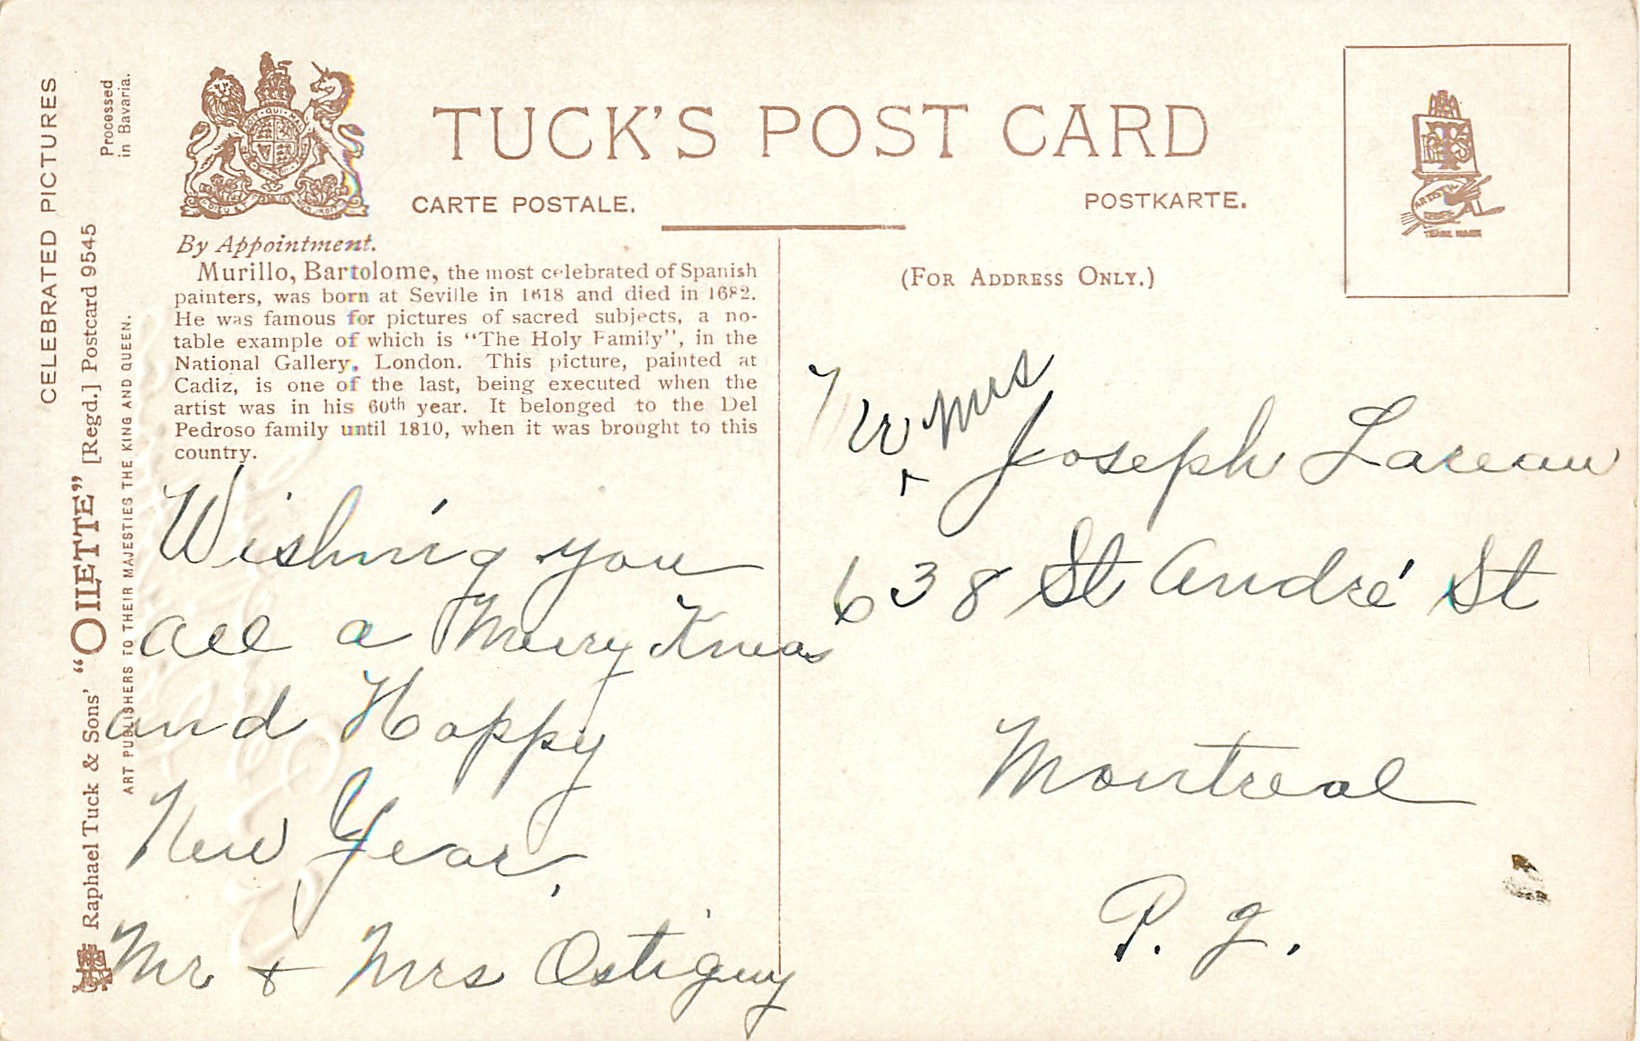 CELEBRATED PICTURES
Processed
in Bavaria.
Raphael Tuck & Sons' "OILETTE" [Regd.] Postcard 9545
ART PUBLISHERS TO THEIR MAJESTIES THE KING AND QUEEN.
TUCK'S POST CARD
CARTE POSTALE.
POSTKARTE.
By Appointment.
Murillo, Bartolome, the most celebrated of Spanish
painters, was born at Seville in 1618 and died in 1682.
He was famous for pictures of sacred subjects, a no-
table example of which is "The Holy Family", in the
National Gallery, London. This picture, painted at
Cadiz, is one of the last, being executed when the
artist was in his 60th year. It belonged to the Del
Pedroso family until 1810, when it was brought to this
country.
Wishing you
all a Merry Xmas
and Happy
New Year,
Mr & Mrs Ostiguy
(FOR ADDRESS ONLY.)
Mr + Mrs
Joseph Lareau
638 St André St
Montreal
P. Q.